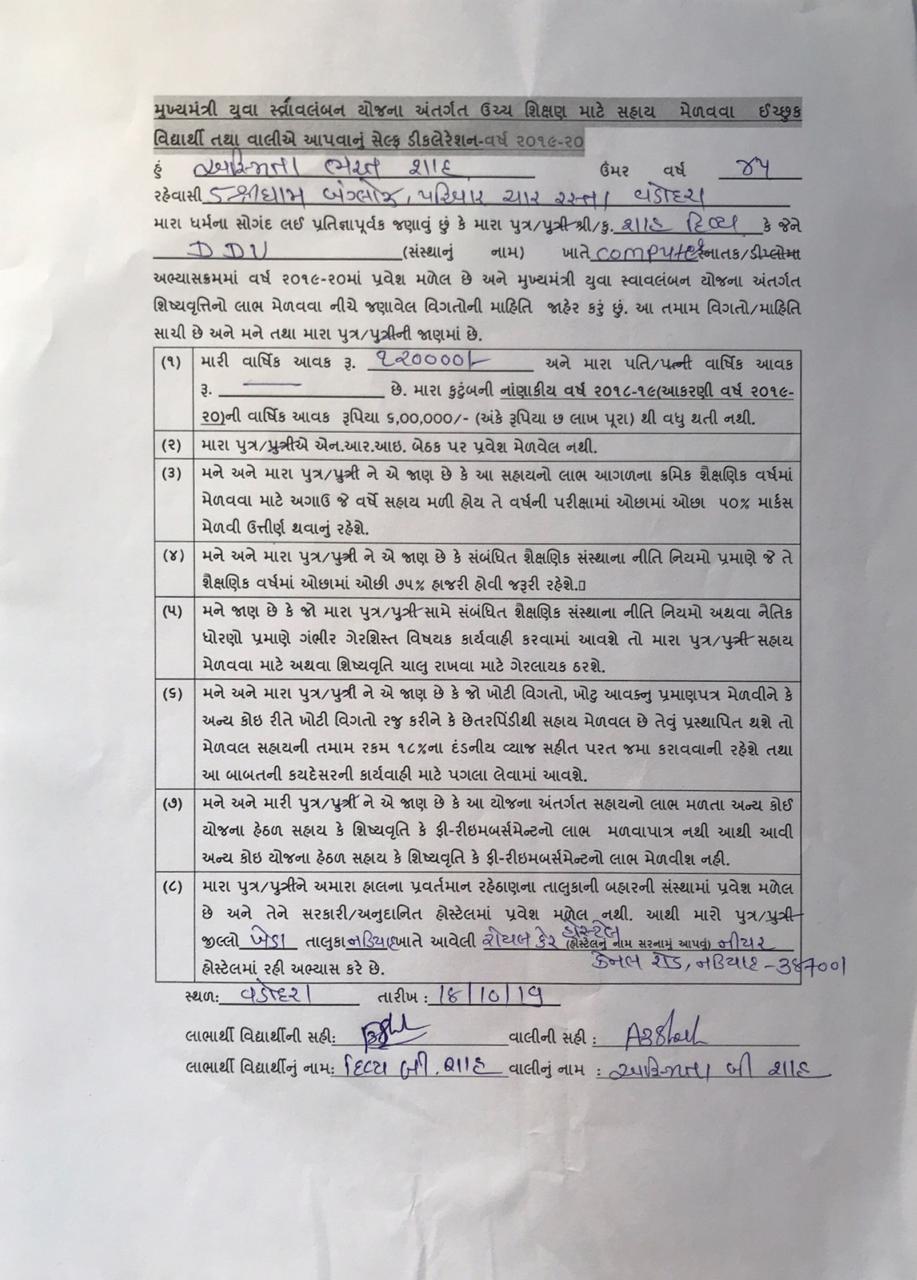 મુખ્યમંત્રી યુવા સ્વાવલંબન યોજના અંતર્ગત ઉચ્ચ શિક્ષણ માટે સહાય મેળવવા ઈચ્છુક
વિદ્યાર્થી તથા વાલીએ આપવાનું સેલ્ફ ડીકલેરેશન-વર્ષ ૨૦૧૯-૨૦
હું અસ્મિતા ભરત શાહ ઉંમર વર્ષ ૪૫
રહેવાસી ૬ શ્રીધામ બંગ્લોઝ, પરિવાર ચાર રસ્તા વડોદરા
મારા ધર્મના સોગંદ લઈ પ્રતિજ્ઞાપૂર્વક જણાવું છું કે મારા પુત્ર/પુત્રી શ્રી/કુ. શાહ દિવ્ય કે જેને
DDU (સંસ્થાનું નામ) ખાતે computer સ્નાતક/ડીપ્લોમા
અભ્યાસક્રમમાં વર્ષ ૨૦૧૯-૨૦માં પ્રવેશ મળેલ છે અને મુખ્યમંત્રી યુવા સ્વાવલંબન યોજના અંતર્ગત
શિષ્યવૃત્તિનો લાભ મેળવવા નીચે જણાવેલ વિગતોની માહિતિ જાહેર કરું છું. આ તમામ વિગતો/માહિતિ
સાચી છે અને મને તથા મારા પુત્ર/પુત્રીની જાણમાં છે.
(૧) મારી વાર્ષિક આવક રૂ. ૧૨૦૦૦૦/- અને મારા પતિ/પત્ની વાર્ષિક આવક
રૂ. — છે. મારા કુટુંબની નાંણાકીય વર્ષ ૨૦૧૮-૧૯(આકરણી વર્ષ ૨૦૧૯-
૨૦)ની વાર્ષિક આવક રૂપિયા ૬,૦૦,૦૦૦/- (અંકે રૂપિયા છ લાખ પૂરા) થી વધુ થતી નથી.
(૨) મારા પુત્ર/પુત્રીએ એન.આર.આઇ. બેઠક પર પ્રવેશ મેળવેલ નથી.
(૩) મને અને મારા પુત્ર/પુત્રી ને એ જાણ છે કે આ સહાયનો લાભ આગળના ક્રમિક શૈક્ષણિક વર્ષમાં
મેળવવા માટે અગાઉ જે વર્ષે સહાય મળી હોય તે વર્ષની પરીક્ષામાં ઓછામાં ઓછા ૫૦% માર્કસ
મેળવી ઉત્તીર્ણ થવાનું રહેશે.
(૪) મને અને મારા પુત્ર/પુત્રી ને એ જાણ છે કે સંબધિત શૈક્ષણિક સંસ્થાના નીતિ નિયમો પ્રમાણે જે તે
શૈક્ષણિક વર્ષમાં ઓછામાં ઓછી ૭૫% હાજરી હોવી જરૂરી રહેશે.
(૫) મને જાણ છે કે જો મારા પુત્ર/પુત્રી સામે સંબંધિત શૈક્ષણિક સંસ્થાના નીતિ નિયમો અથવા નૈતિક
ધોરણો પ્રમાણે ગંભીર ગેરશિસ્ત વિષયક કાર્યવાહી કરવામાં આવશે તો મારા પુત્ર/પુત્રી સહાય
મેળવવા માટે અથવા શિષ્યવૃતિ ચાલુ રાખવા માટે ગેરલાયક ઠરશે.
(૬) મને અને મારા પુત્ર/પુત્રી ને એ જાણ છે કે જો ખોટી વિગતો, ખોટુ આવકનુ પ્રમાણપત્ર મેળવીને કે
અન્ય કોઇ રીતે ખોટી વિગતો રજુ કરીને કે છેતરપિંડીથી સહાય મેળવલ છે તેવું પ્રસ્થાપિત થશે તો
મેળવલ સહાયની તમામ રકમ ૧૮%ના દંડનીય વ્યાજ સહીત પરત જમા કરાવવાની રહેશે તથા
આ બાબતની કયદેસરની કાર્યવાહી માટે પગલા લેવામાં આવશે.
(૭) મને અને મારી પુત્ર/પુત્રી ને એ જાણ છે કે આ યોજના અંતર્ગત સહાયનો લાભ મળતા અન્ય કોઈ
યોજના હેઠળ સહાય કે શિષ્યવૃતિ કે ફી-રીઇમબર્સમેન્ટનો લાભ મળવાપાત્ર નથી આથી આવી
અન્ય કોઇ યોજના હેઠળ સહાય કે શિષ્યવૃતિ કે ફી-રીઇમબર્સમેન્ટનો લાભ મેળવીશ નહી.
(૮) મારા પુત્ર/પુત્રીને અમારા હાલના પ્રવર્તમાન રહેઠાણના તાલુકાની બહારની સંસ્થામાં પ્રવેશ મળેલ
છે અને તેને સરકારી/અનુદાનિત હોસ્ટેલમાં પ્રવેશ મળેલ નથી. આથી મારો પુત્ર/પુત્રી
જીલ્લો ખેડા તાલુકા નડિયાદ ખાતે આવેલી રોયલ કેર હોસ્ટેલ (હોસ્ટેલનું નામ સરનામું આપવું) નીયર
હોસ્ટેલમાં રહી અભ્યાસ કરે છે. કેનલ રોડ, નડિયાદ - 387001
સ્થળ: વડોદરા તારીખ : 18/10/19
લાભાર્થી વિદ્યાર્થીની સહી: વાલીની સહી : ABShah
લાભાર્થી વિદ્યાર્થીનું નામ: દિવ્ય બી. શાહ વાલીનું નામ : અસ્મિતા બી શાહ